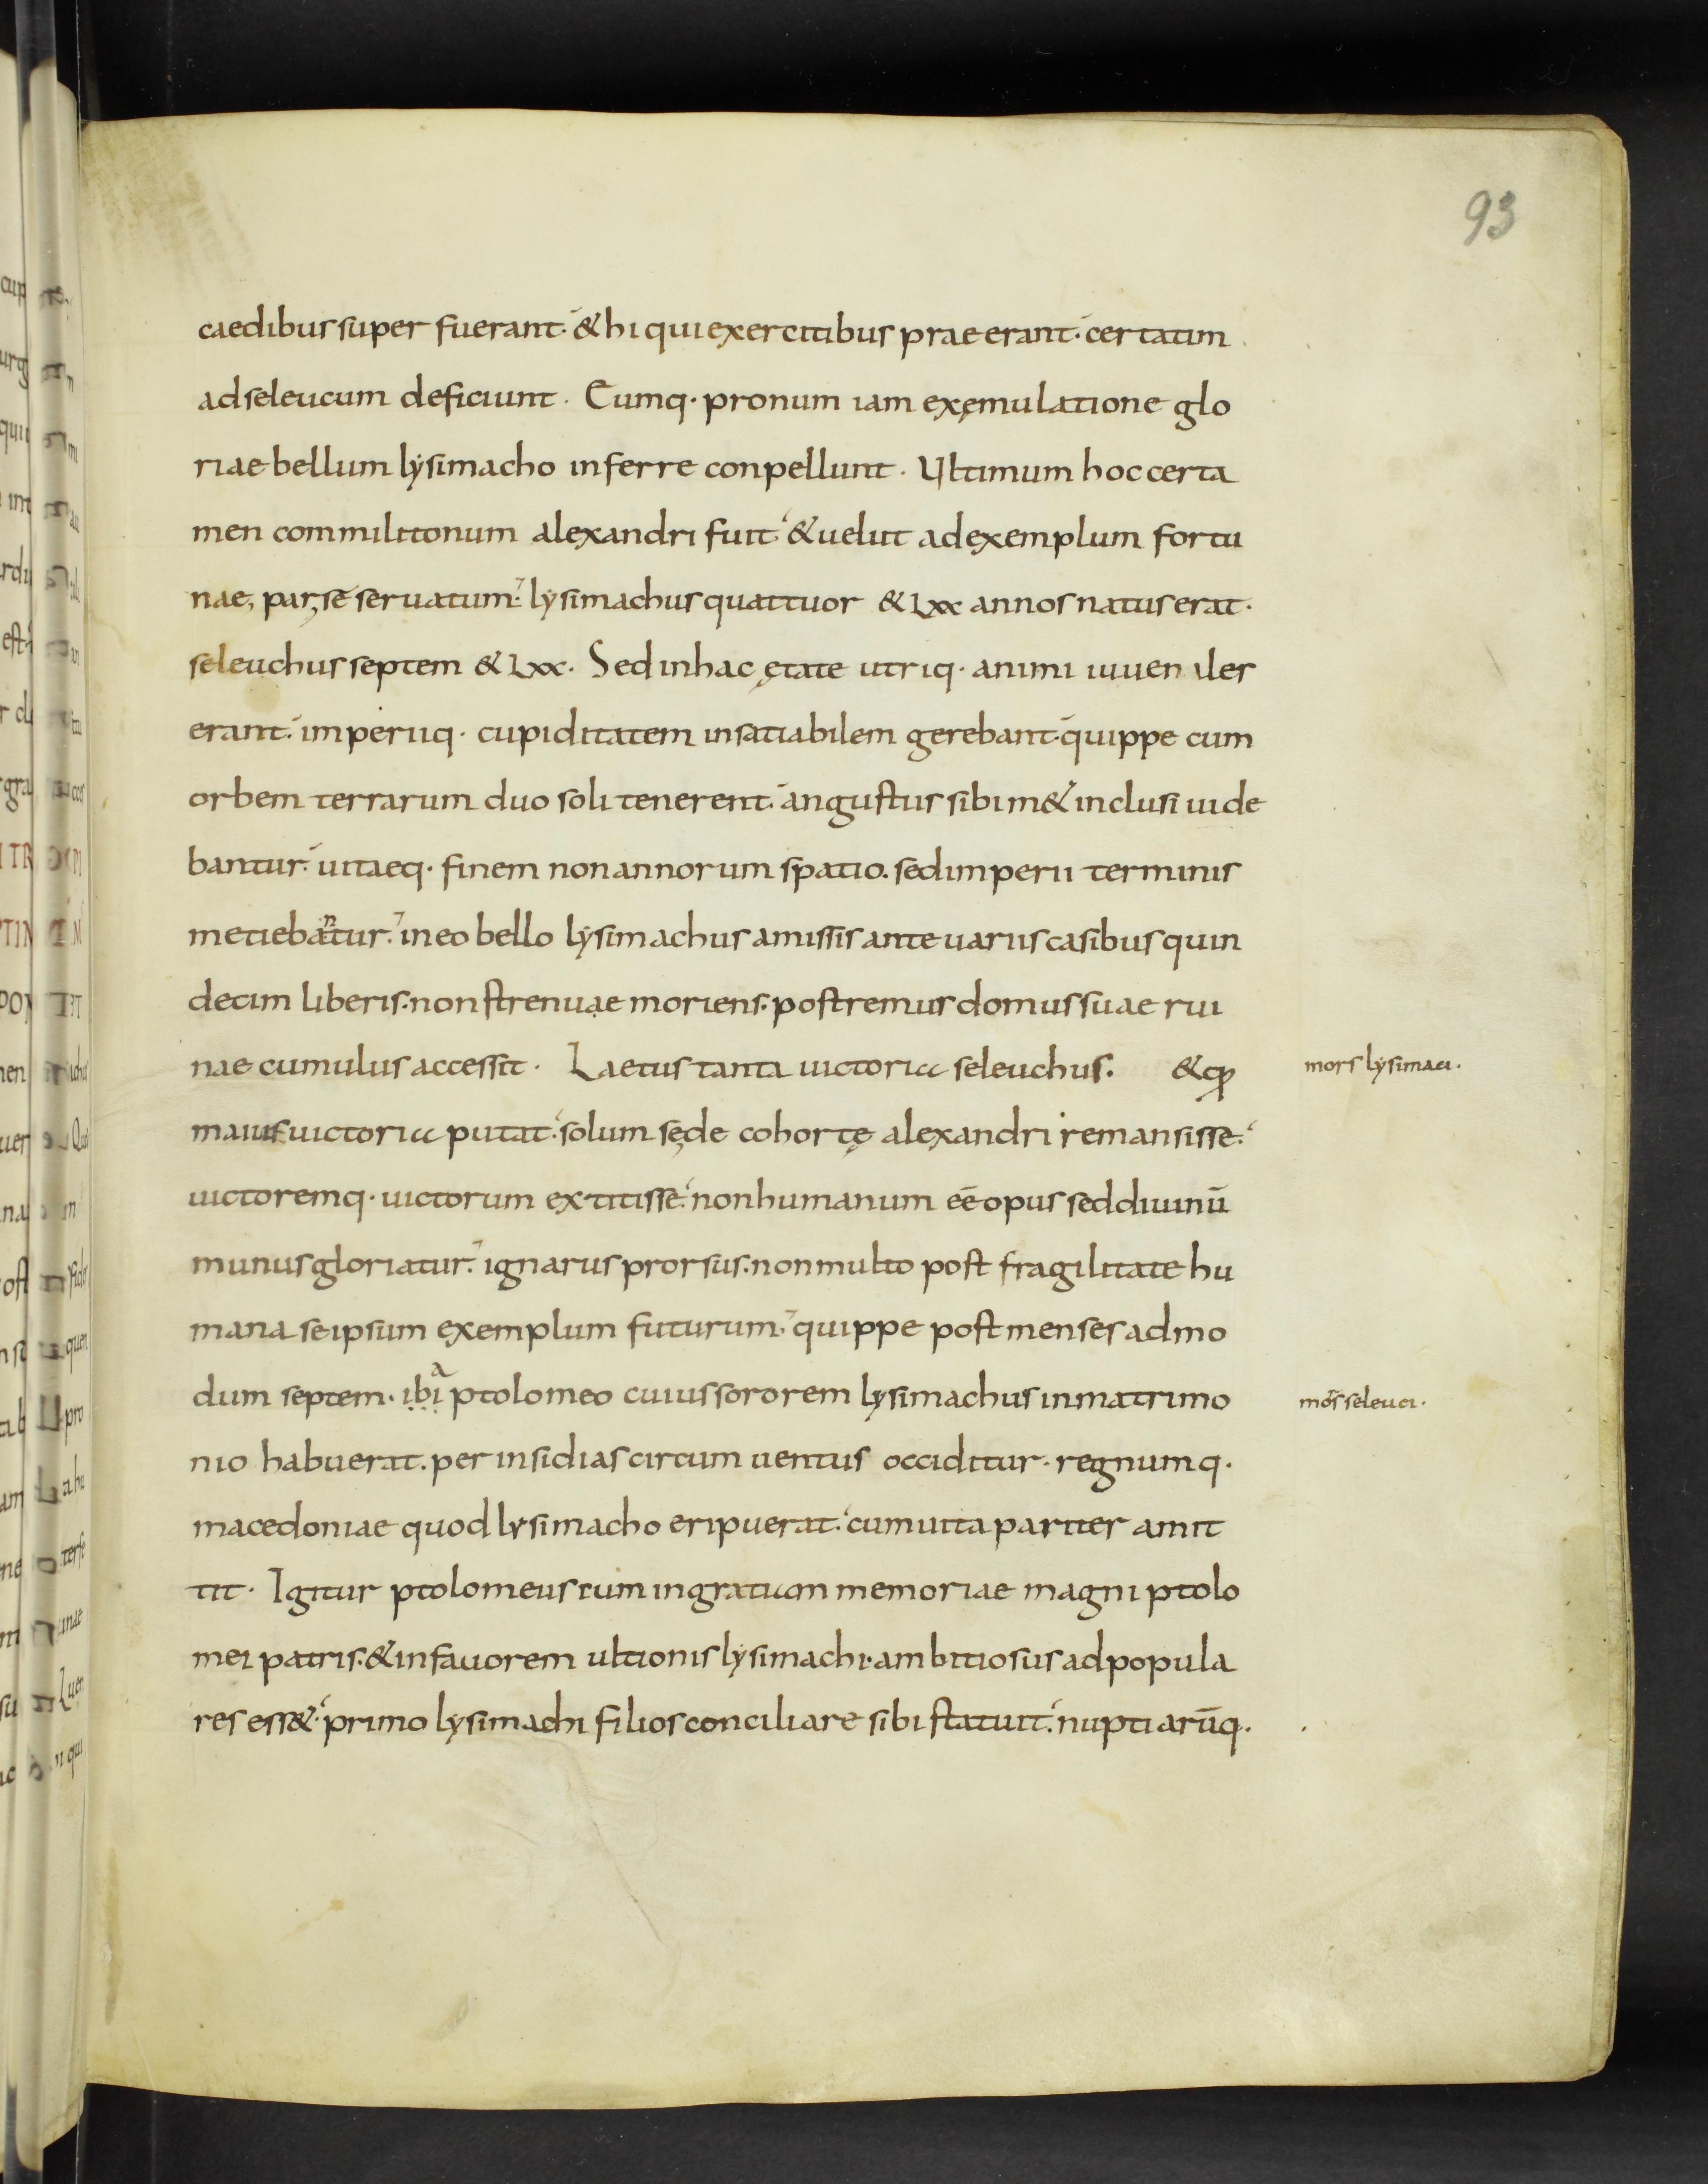 93
caedibus super fuerant. & hi qui exercitibus prae erant. certatim
ad seleucum deficiunt. Cumq· pronum iam ex ęmulatione glo
riae bellum lysimacho inferre conpellunt. Ultimum hoc certa
men commilitonum alexandri fuit. & uelut ad exemplum fortu
nae, par, se seruatum. lysimachus quattuor & Lxx annos natus erat.
seleuchus septem & Lxx. Sed in hac ętate utriq· animi iuueniles
erant. imperiiq· cupiditatem insatiabilem gerebant. quippe cum
orbem terrarum duo soli tenerent. angustius sibim& inclusi uide
bantur. uitaeq· finem non annorum spatio. sed imperii terminis
metiebantur. in eo bello lysimachus amissis ante uariis casibus quin
decim liberis. non strenuae moriens. postremus domus suae rui
nae cumulus accessit. Laetus tanta uictoria seleuchus. & qđ
mors lysimaci.
maius uictoria putat. solum sęde cohortę alexandri remansisse.
uictoremq· uictorum extitisse. non humanum eē opus sed diuinū
munus gloriatur. ignarus prorsus. non multo post fragilitate hu
mana se ipsum exemplum futurum. quippe post menses admo
dum septem. ibi a ptolomeo cuius sororem lysimachus in matrimo
mors seleuci.
nio habuerat. per insidias circum uentus occiditur. regnumq·
macedoniae quod lysimacho eripuerat. cum uita pariter amit
tit. Igitur ptolomeus cum in gratiam memoriae magni ptolo
mei patris. & in fauorem ultionis lysimachi. ambitiosus ad popula
res ess&. primo lysimachi filios conciliare sibi statuit. nuptiarūq·